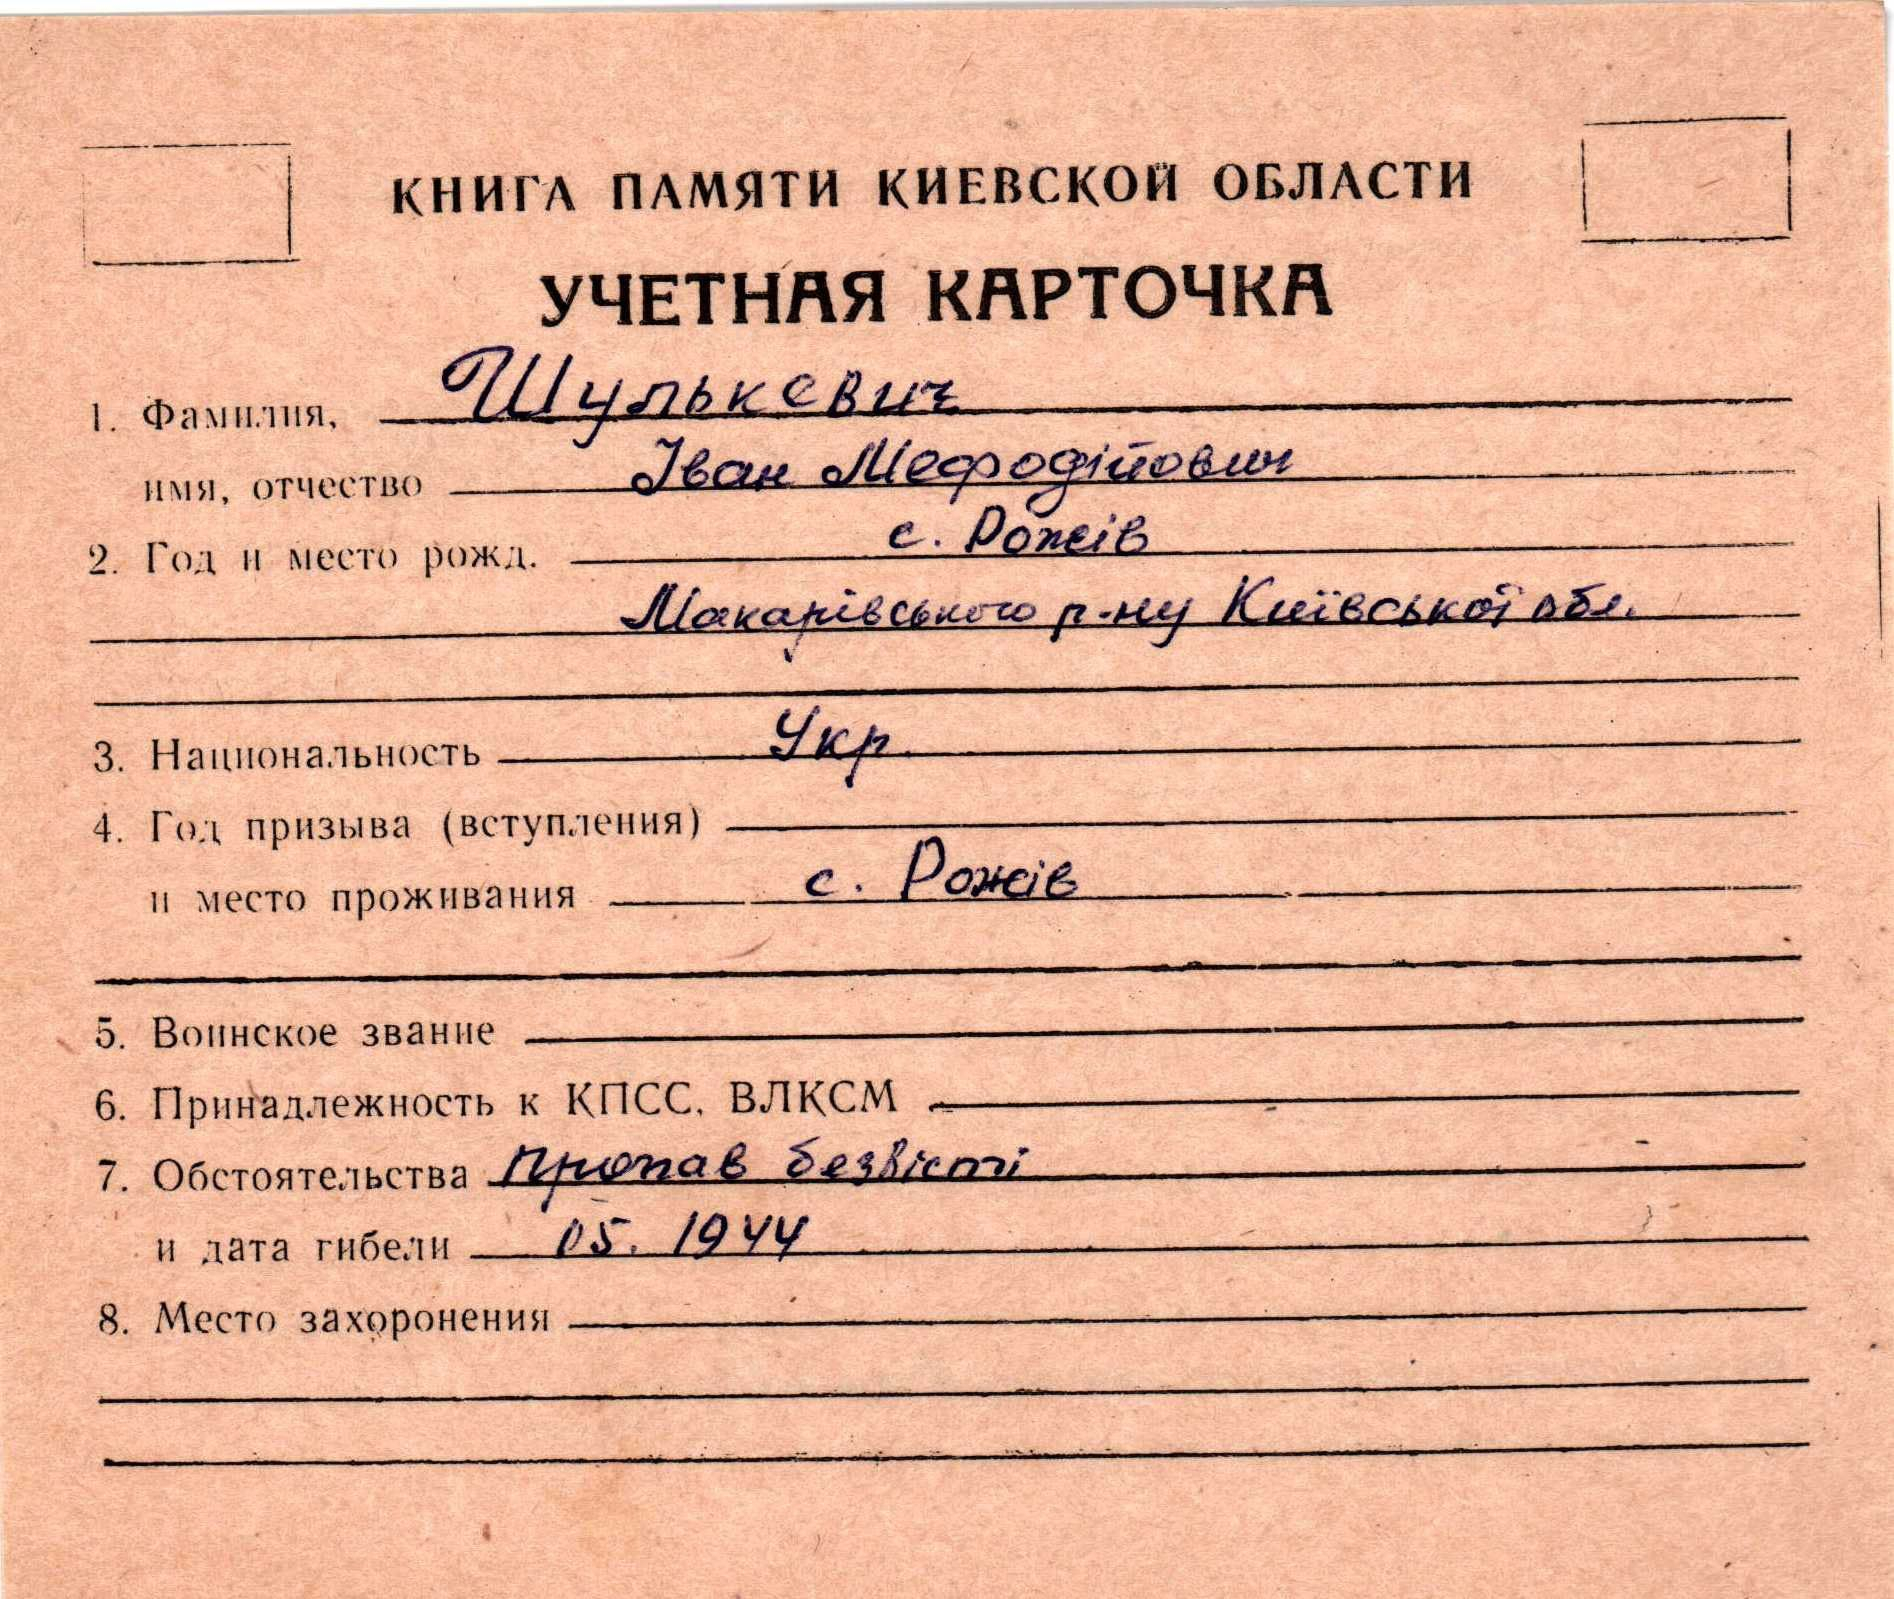 КНИГА ПАМЯТИ КИЕВСКОЙ ОБЛАСТИ
УЧЕТНАЯ КАРТОЧКА
1. Фамилия, Шулькевич
имя, отчество Іван Мефодійович
2. Год и место рожд. с. Рожів
Макарівського р-ну Київської обл.
3. Национальность Укр.
4. Год призыва (вступления)
и место проживания с. Рожів
5. Воинское звание
6. Принадлежность к КПСС, ВЛКСМ
7. Обстоятельства пропав безвісті
и дата гибели 05. 1944
8. Место захоронения